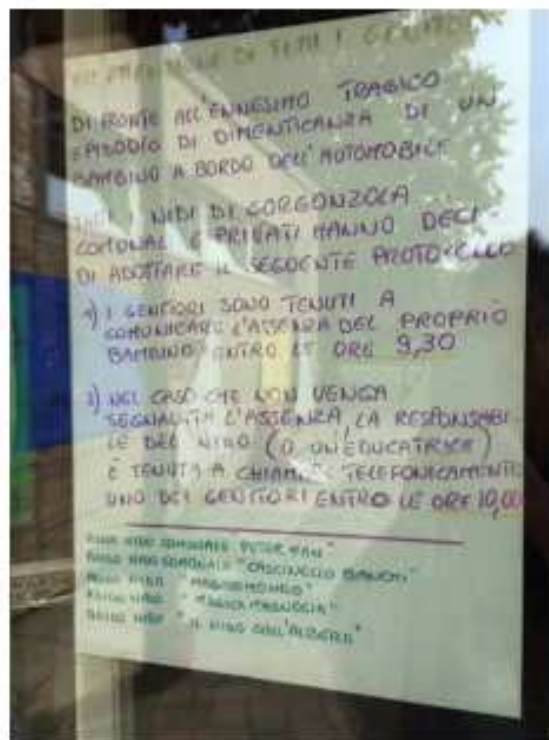 ALL'ATTENZIONE DI TUTTI I GENITORI
DI FRONTE ALL'ENNESIMO TRAGICO
EPISODIO DI DIMENTICANZA DI UN
BAMBINO A BORDO DELL'AUTOMOBILE
TUTTI I NIDI DI GORGONZOLA
COMUNALI E PRIVATI HANNO DECI-
DI ADOTTARE IL SEGUENTE PROTOCOLLO
1) I GENITORI SONO TENUTI A
COMUNICARE L'ASSENZA DEL PROPRIO
BAMBINO ENTRO LE ORE 9,30
2) NEL CASO CHE NON VENGA
SEGNALATA L'ASSENZA, LA RESPONSABI-
LE DEL NIDO (O UN'EDUCATRICE)
È TENUTA A CHIAMARE TELEFONICAMENTE
UNO DEI GENITORI ENTRO LE ORE 10,00
ASILO NIDO COMUNALE "PETER PAN"
ASILO NIDO COMUNALE "CASCINELLO BIANCHI"
ASILO NIDO "MAGICOMONDO"
ASILO NIDO "MAGICA MAGNOLIA"
ASILO NIDO "IL NIDO SULL'ALBERO"